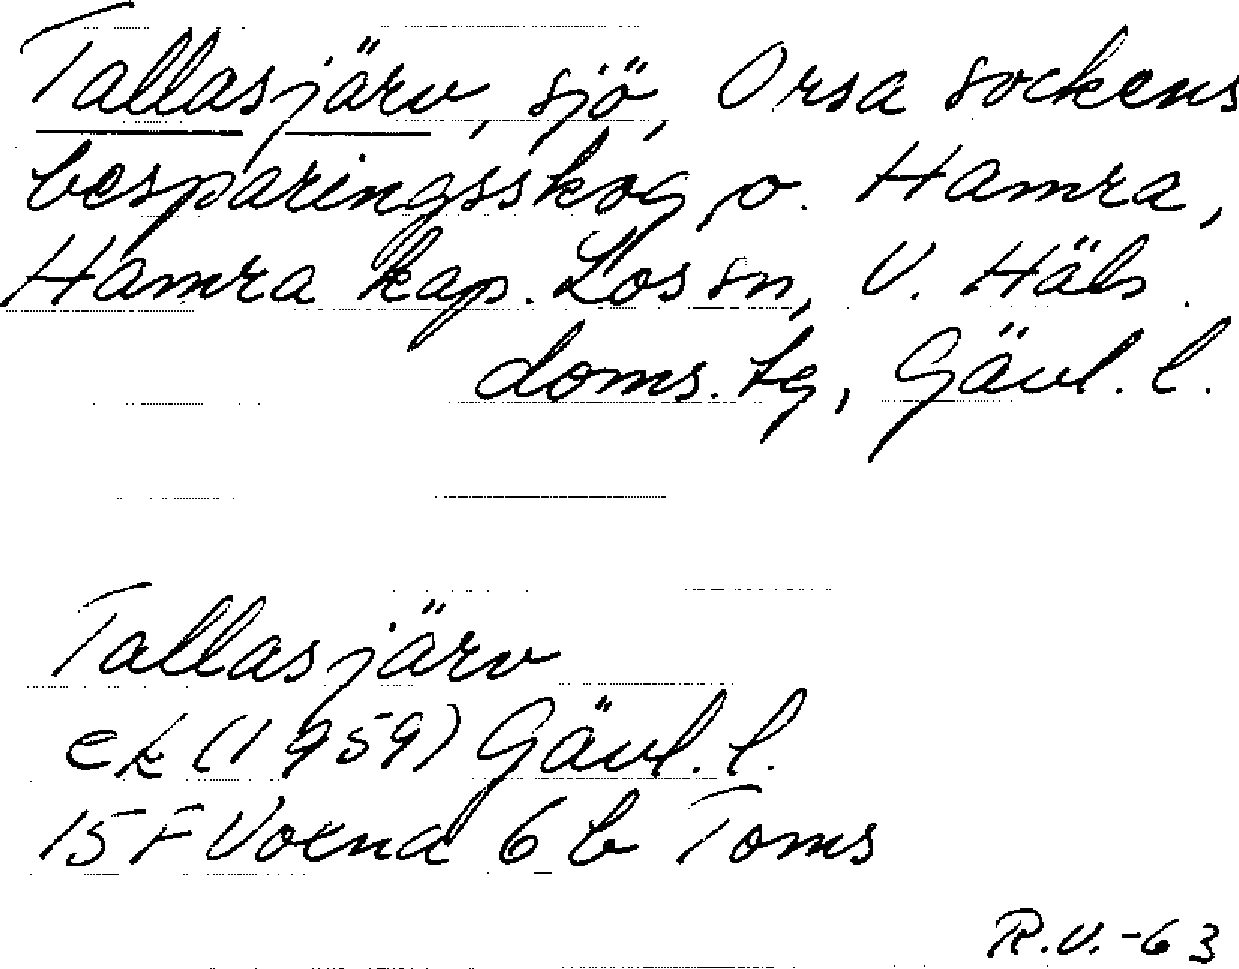 Tallasjärv, sjö, Orsa sockens
besparingsskog, o. Hamra,
Hamra kap. Los sn, V. Häls.
doms. tg, Gävl. l.
Tallasjärv
ek (1959) Gävl. l.
15 F Voxna 6 b Toms
R.V. -63